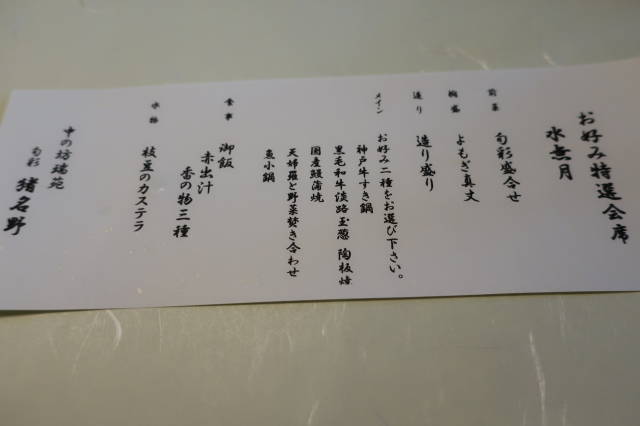 お好み特選会席
水無月
前菜
旬彩盛合せ
椀盛
よもぎ真丈
造り
造り盛り
メイン
お好み二種をお選び下さい。
神戸牛すき鍋
黒毛和牛淡路玉葱 陶板焼
国産鰻蒲焼
天婦羅と野菜焚き合わせ
魚小鍋
食事
御飯
赤出汁
香の物三種
水物
枝豆のカステラ
中の坊瑞苑
旬彩 猪名野